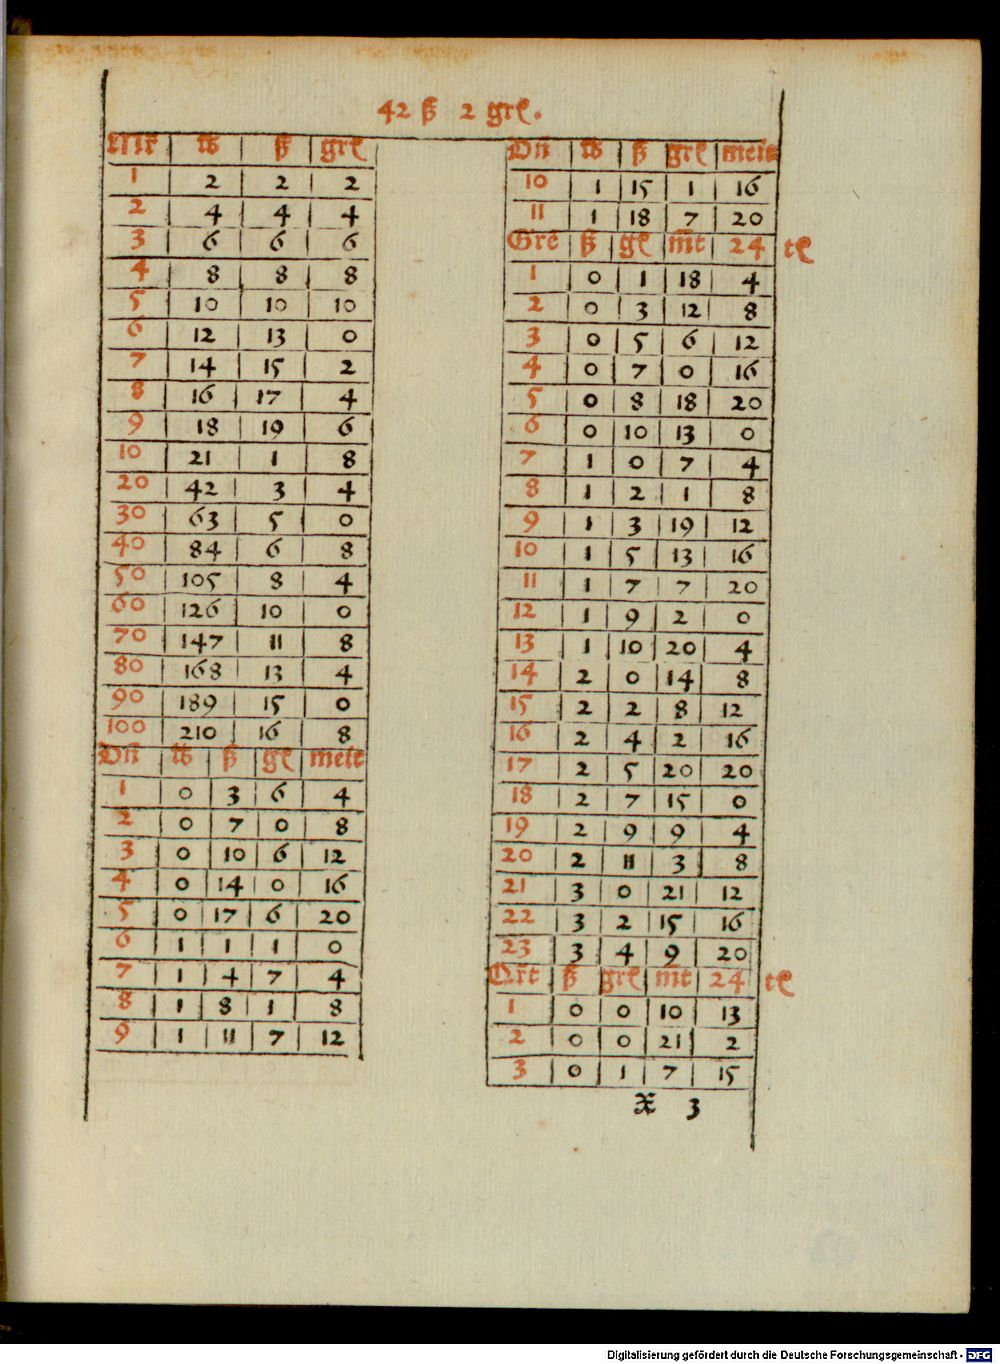 42 ß 2 grſ.
Mr̄ | ℔ | ß | grſ
1 | 2 | 2 | 2
2 | 4 | 4 | 4
3 | 6 | 6 | 6
4 | 8 | 8 | 8
5 | 10 | 10 | 10
6 | 12 | 13 | 0
7 | 14 | 15 | 2
8 | 16 | 17 | 4
9 | 18 | 19 | 6
10 | 21 | 1 | 8
20 | 42 | 3 | 4
30 | 63 | 5 | 0
40 | 84 | 6 | 8
50 | 105 | 8 | 4
60 | 126 | 10 | 0
70 | 147 | 11 | 8
80 | 168 | 13 | 4
90 | 189 | 15 | 0
100 | 210 | 16 | 8
Dn̄ | ℔ | ß | gſ | meit
1 | 0 | 3 | 6 | 4
2 | 0 | 7 | 0 | 8
3 | 0 | 10 | 6 | 12
4 | 0 | 14 | 0 | 16
5 | 0 | 17 | 6 | 20
6 | 1 | 1 | 1 | 0
7 | 1 | 4 | 7 | 4
8 | 1 | 8 | 1 | 8
9 | 1 | 11 | 7 | 12
Dn̄ | ℔ | ß | grſ | meit
10 | 1 | 15 | 1 | 16
11 | 1 | 18 | 7 | 20
Grē | ß | gſ | m̄t | 24 tſ
1 | 0 | 1 | 18 | 4
2 | 0 | 3 | 12 | 8
3 | 0 | 5 | 6 | 12
4 | 0 | 7 | 0 | 16
5 | 0 | 8 | 18 | 20
6 | 0 | 10 | 13 | 0
7 | 1 | 0 | 7 | 4
8 | 1 | 2 | 1 | 8
9 | 1 | 3 | 19 | 12
10 | 1 | 5 | 13 | 16
11 | 1 | 7 | 7 | 20
12 | 1 | 9 | 2 | 0
13 | 1 | 10 | 20 | 4
14 | 2 | 0 | 14 | 8
15 | 2 | 2 | 8 | 12
16 | 2 | 4 | 2 | 16
17 | 2 | 5 | 20 | 20
18 | 2 | 7 | 15 | 0
19 | 2 | 9 | 9 | 4
20 | 2 | 11 | 3 | 8
21 | 3 | 0 | 21 | 12
22 | 3 | 2 | 15 | 16
23 | 3 | 4 | 9 | 20
Qr̄t | ß | grſ | m̄t | 24 tſ
1 | 0 | 0 | 10 | 13
2 | 0 | 0 | 21 | 2
3 | 0 | 1 | 7 | 15
X 3
Digitalisierung gefördert durch die Deutsche Forschungsgemeinschaft - DFG